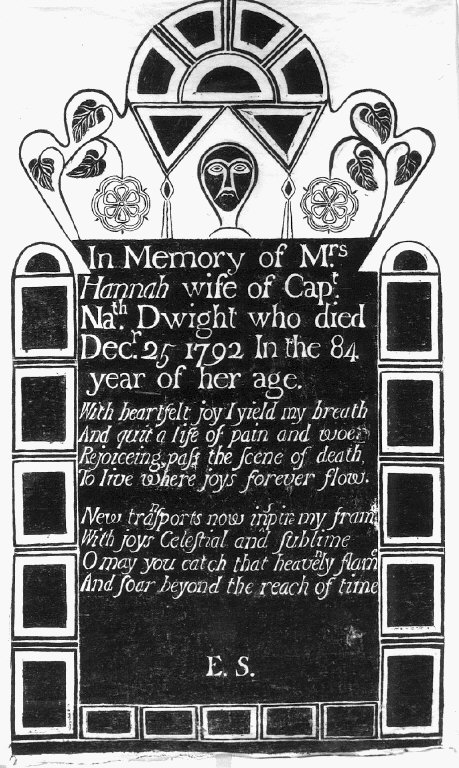 In Memory of Mrs
Hannah wife of Capt.
Nath. Dwight who died
Decr. 25 1792 In the 84
year of her age.
With heartfelt joy I yield my breath
And quit a life of pain and woe
Rejoiceing, paſs the ſcene of death,
To live where joys forever flow.
New tranſports now inſpire my frame
With joys Celeſtial and ſublime
O may you catch that heavenly flame
And ſoar beyond the reach of time
E. S.